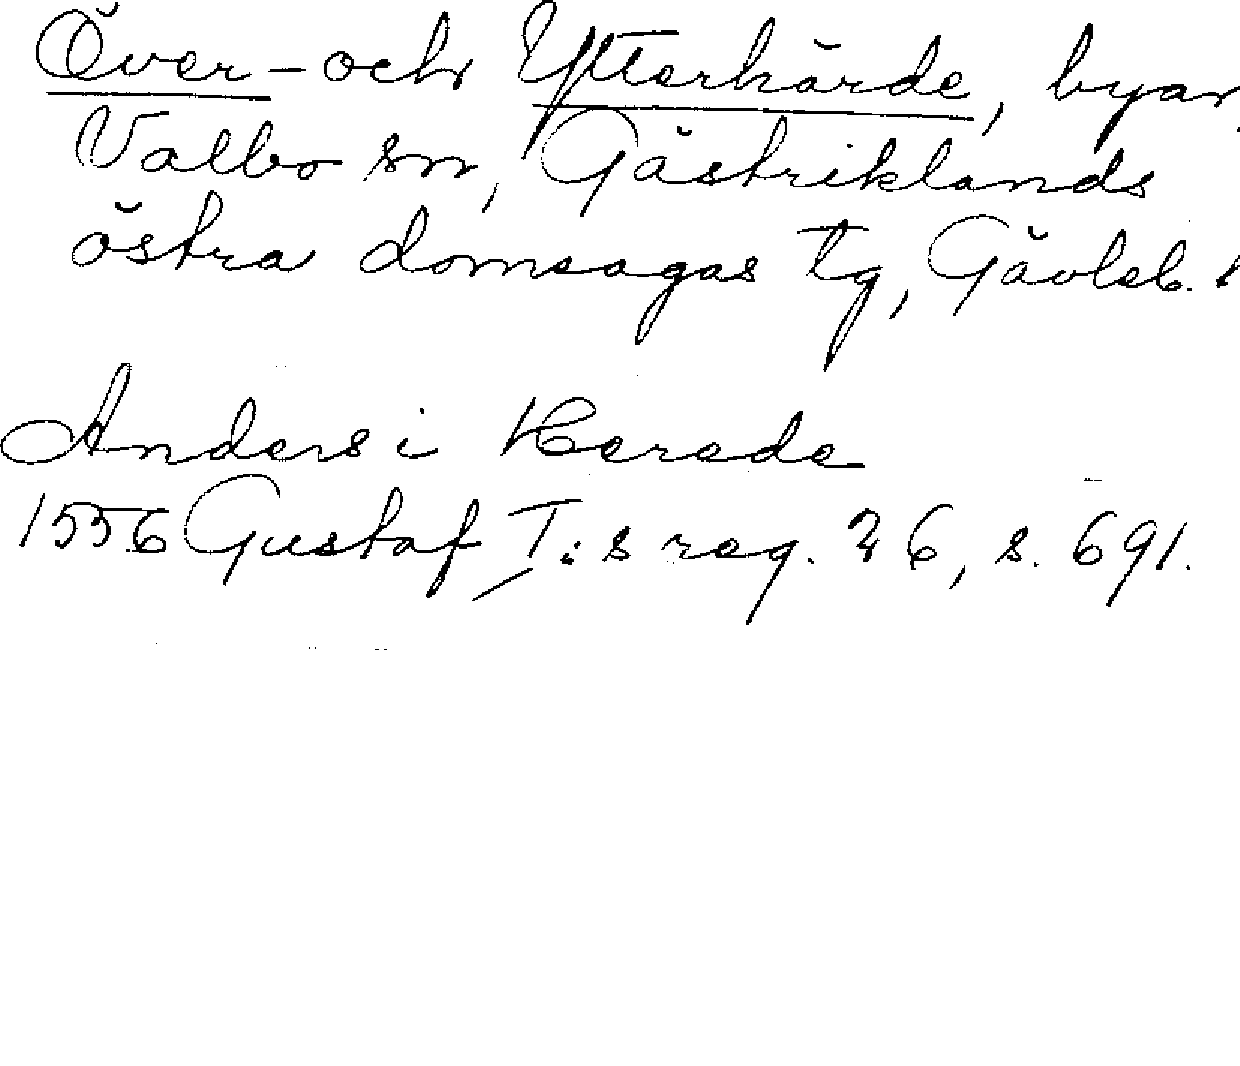 Över- och Ytterhärde, byar,
Valbo sn, Gästriklands
östra domsagas tg, Gävleb.
Anders i Herede
1556 Gustaf I:s reg. 26, s. 691.